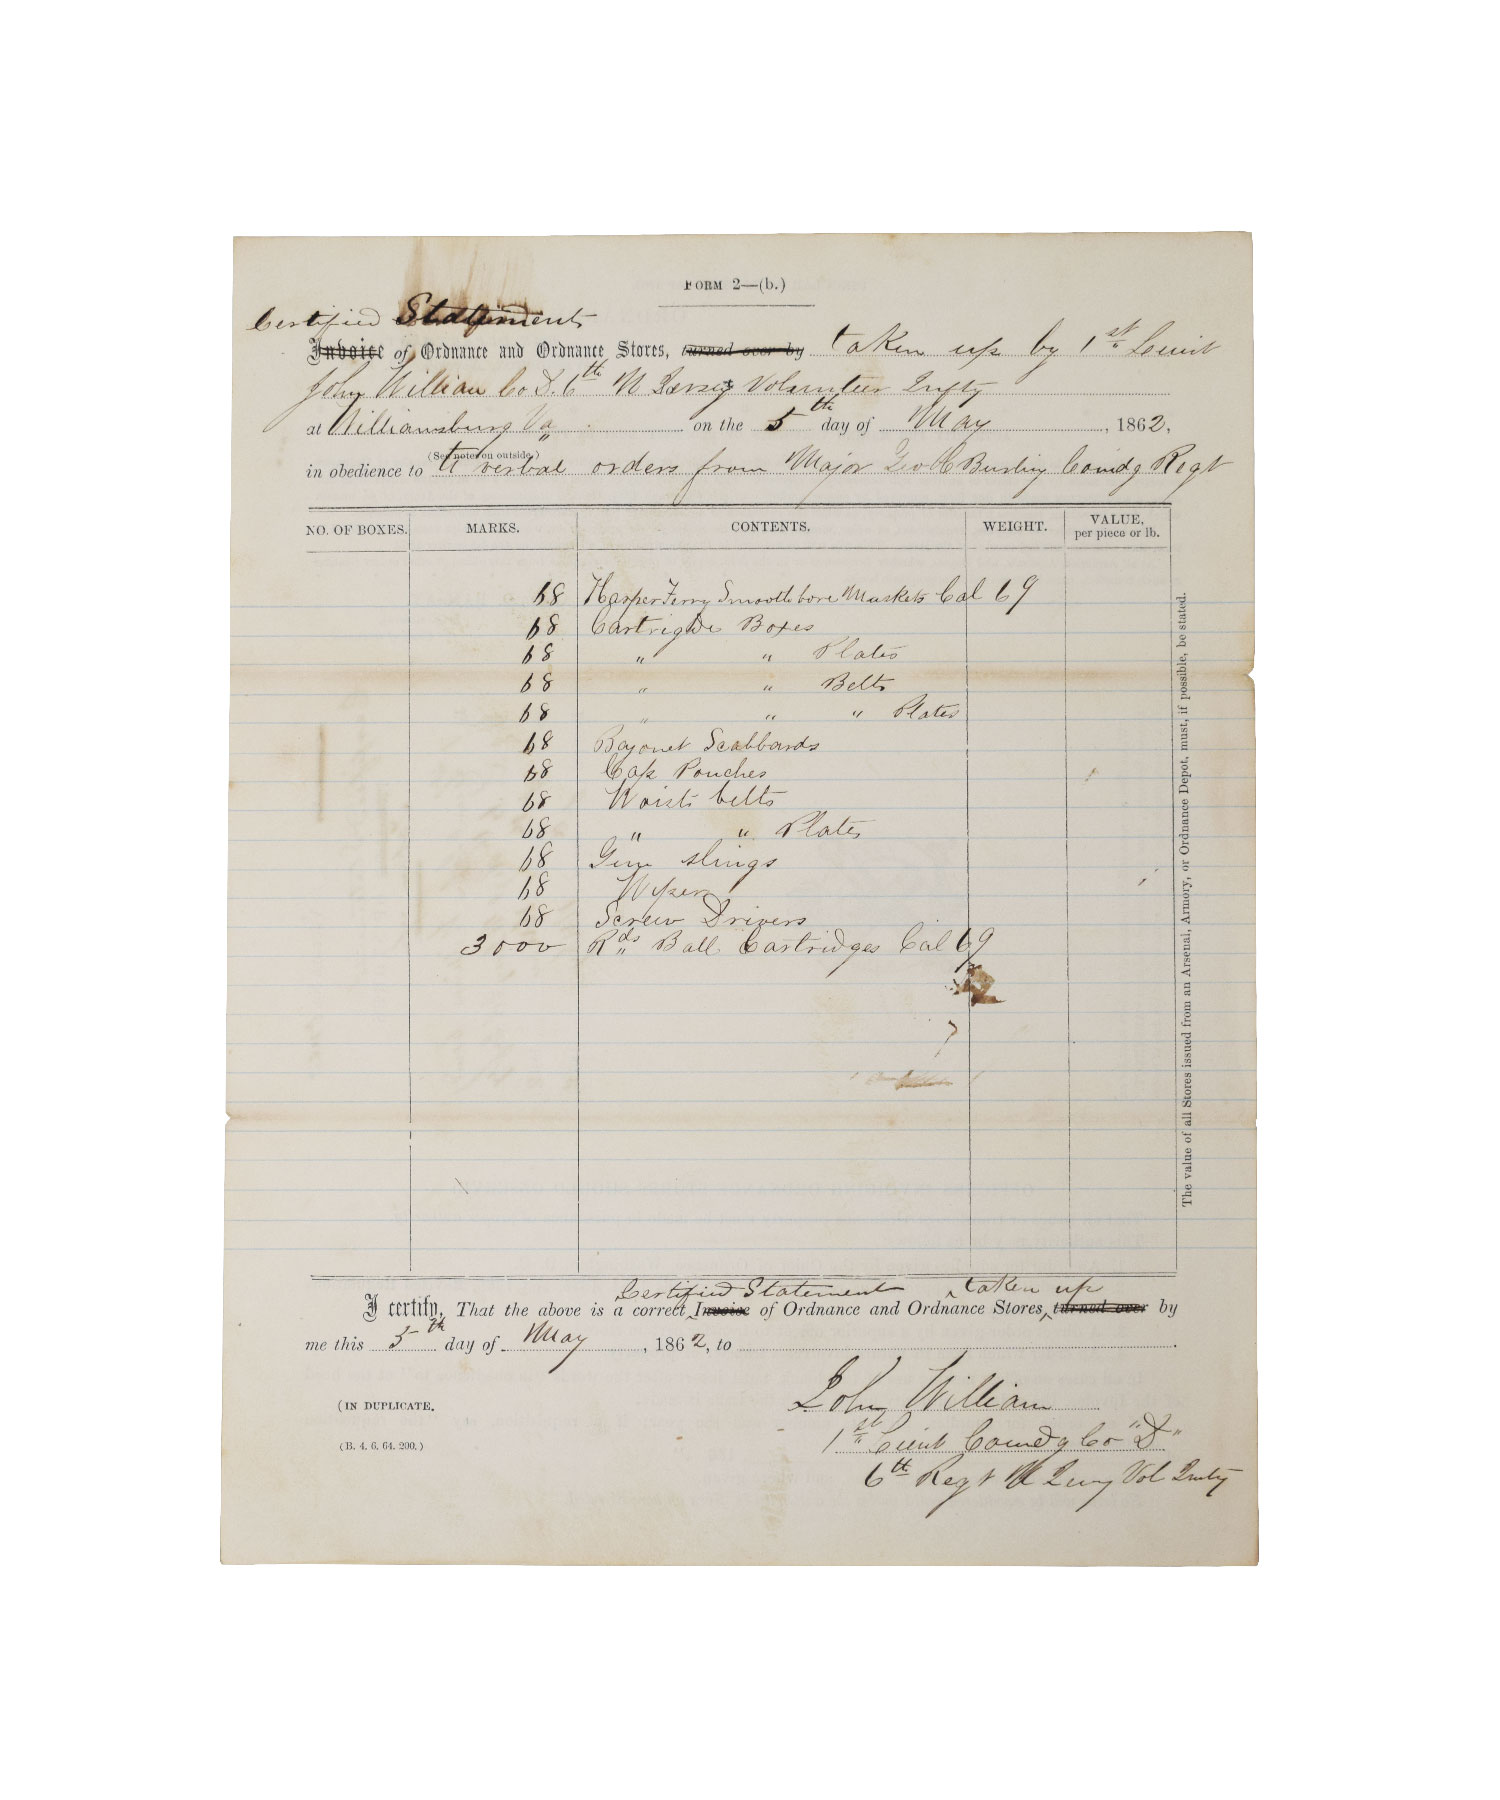 FORM 2—(b.)
Certified Statement
Invoice of Ordnance and Ordnance Stores, turned over by taken up by 1st Lieut
John William Co D. 6th N Jersey Volunteer Infty
at Williamsburg Va on the 5th day of May, 1862,
(See notes on outside.)
in obedience to to verbal orders from Major Geo C Burling Comdg Regt
NO. OF BOXES. MARKS. CONTENTS. WEIGHT. VALUE, per piece or lb.
68 Harper Ferry Smooth bore Muskets Cal 69
68 Cartrigde Boxes
68 " " Plates
68 " " Belts
68 " " " Plates
68 Bayonet Scabbards
68 Cap Pouches
68 Waist belts
68 " " Plates
68 Gun slings
68 Wipers
68 Screw Drivers
3000 Rds Ball Cartridges Cal 69
The value of all Stores issued from an Arsenal, Armory, or Ordnance Depot, must, if possible, be stated.
Certified Statement taken up
I certify, That the above is a correct Invoice of Ordnance and Ordnance Stores, turned over by
me this 5th day of May, 1862, to
John William
(IN DUPLICATE.
1st Lieut Comdg Co "D"
(B. 4. 6. 64. 200.)
6th Regt N Jersey Vol Infty